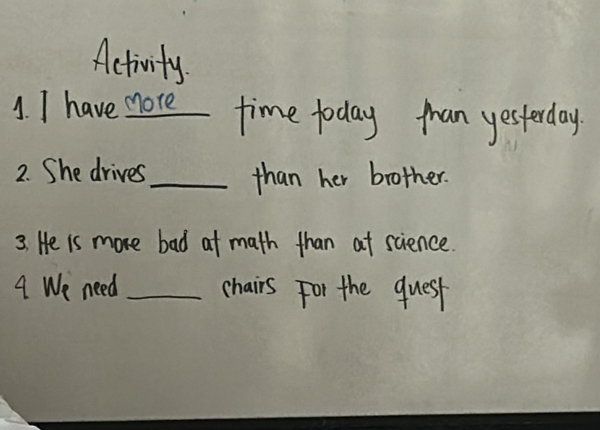 Activity.
1. I have more time today than yesterday.
2. She drives ______ than her brother.
3. He is more bad at math than at science.
4 We need ______ chairs For the quest